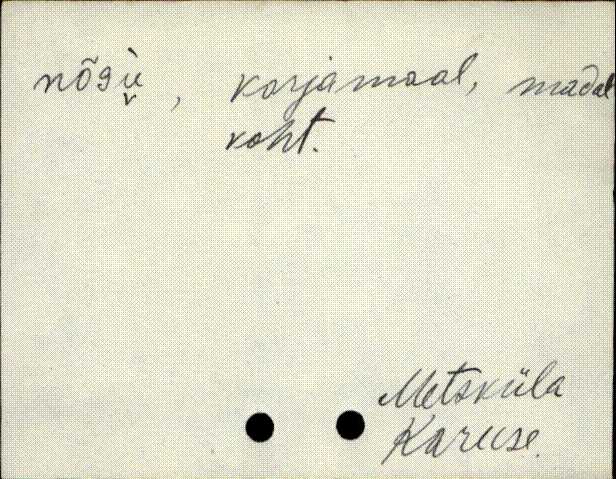 nõgù̬, karjamaal, madal
koht.
Metsküla
Karuse.